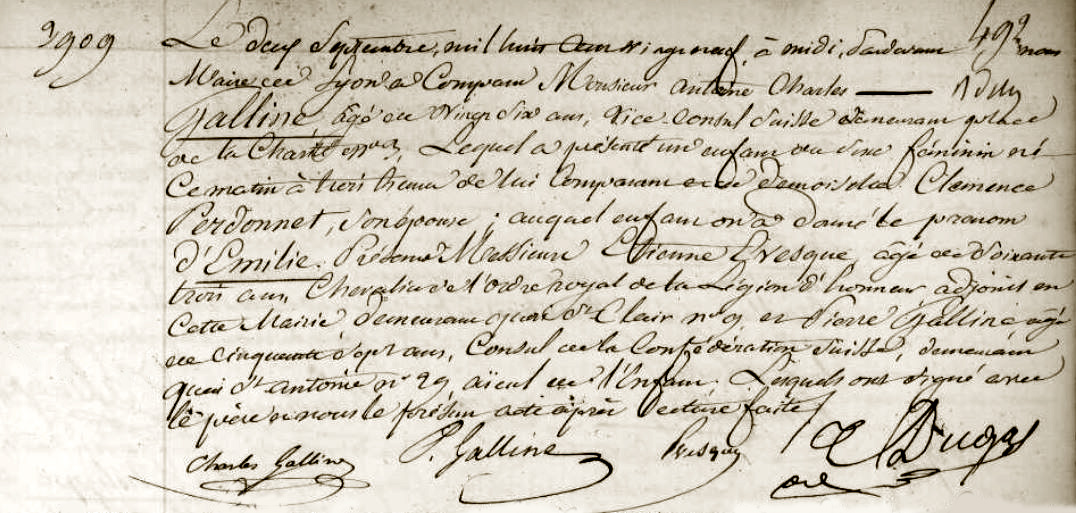 3909
Le deux Septembre, mil huit cent vingt neuf, à midi, Pardevant nous
Maire de Lyon a Comparu Monsieur Antoine Charles
Galline âgé de Vingt Six ans, Vice Consul Suisse demeurant place
de la Charité, Lequel a présenté un enfant du sexe féminin né
Ce matin à trois heures de lui Comparant et de demoiselle Clemence
Perdonnet, son épouse ; auquel enfant on a donné le prenom
d'Emilie. Présens Messieurs Etienne Evesque, âgé de Soixante
trois ans, Chevalier de l'ordre royal de la Légion d'honneur adjoint en
Cette Mairie, demeurant quai St Clair n° 9, et Pierre Galline, âgé
de Cinquante Sept ans, Consul de la Confédération Suisse, demeurant
quai St Antoine n° 29, aïeul de l'Enfant. Lesquels ont signé avec
le père et nous le présent acte après lecture faite
Charles Galline P. Galline Evesque Dugas